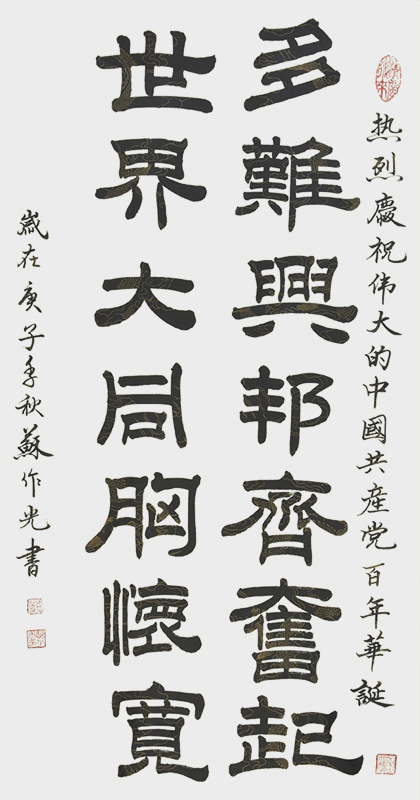 热烈慶祝伟大的中國共産党百年華誕
多難興邦齊奮起
世界大同胸懷寬
歲在庚子季秋蘇作光書